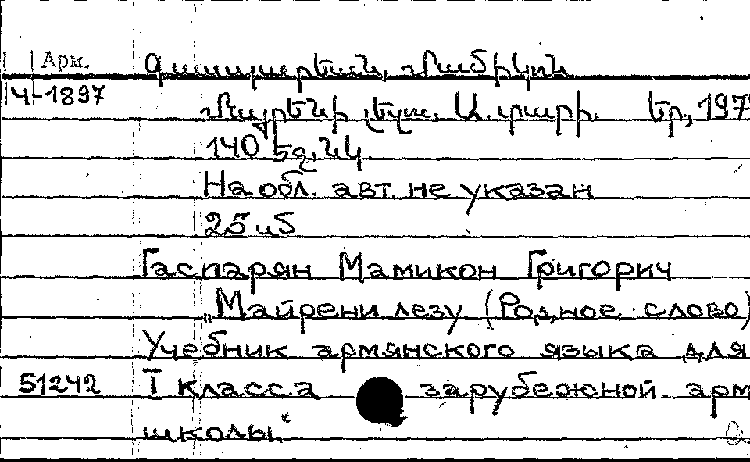 Арм. Գասպարեան, Մամիկոն
Ч-1897 Մայրենի լեզու. Ա. տարի. Եր., 197
140 էջ, նկ.
На обл. авт. не указан
25
Гаспарян Мамикон Григорич
„Майрени лезу (Родное слово)
Учебник армянского языка для
51242 I класса зарубежной арм
школы“